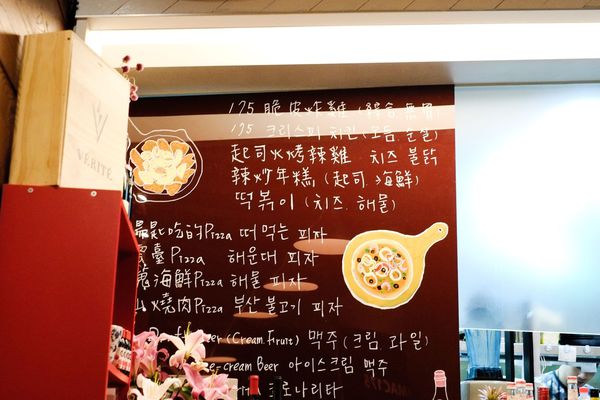 VÉRITÉ
175 脆皮炸雞 (綜合.無骨)
175 크리스피 치킨 (모듬 순살)
起司火烤辣雞 . 치즈 불닭
辣炒年糕 (起司.海鮮)
떡볶이 (치즈. 해물)
最匙吃的Pizza 떠 먹는 피자
臺 Pizza 해운대 피자
海鮮Pizza 해물 피자
山火燒肉Pizza 부산 불고기 피자
(Cream.Fruit) 맥주 (크림 과일)
-cream Beer 아이스크림 맥주
로나리타